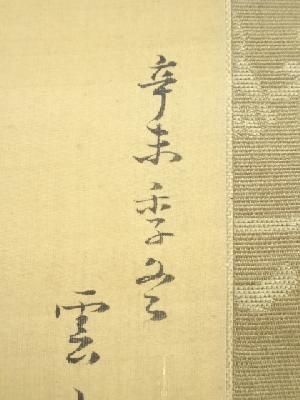 辛未季冬
雲